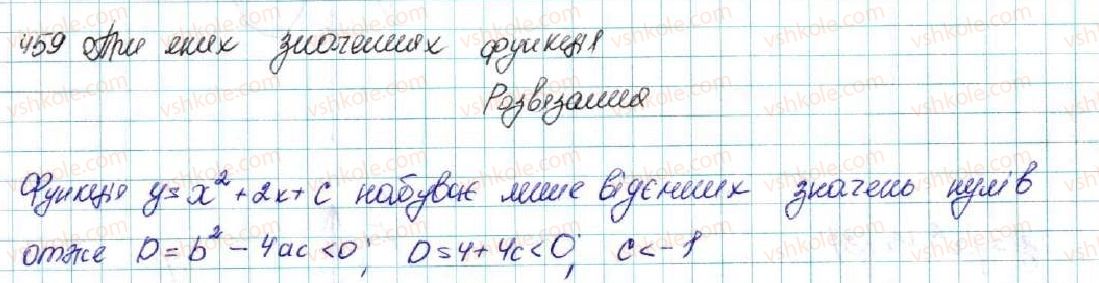 459 При яких значеннях функція
Розвязання
Функція y=x²+2x+c набуває лише відємних значень нулів
отже D=b²-4ac<0; D=4+4c<0; c<-1